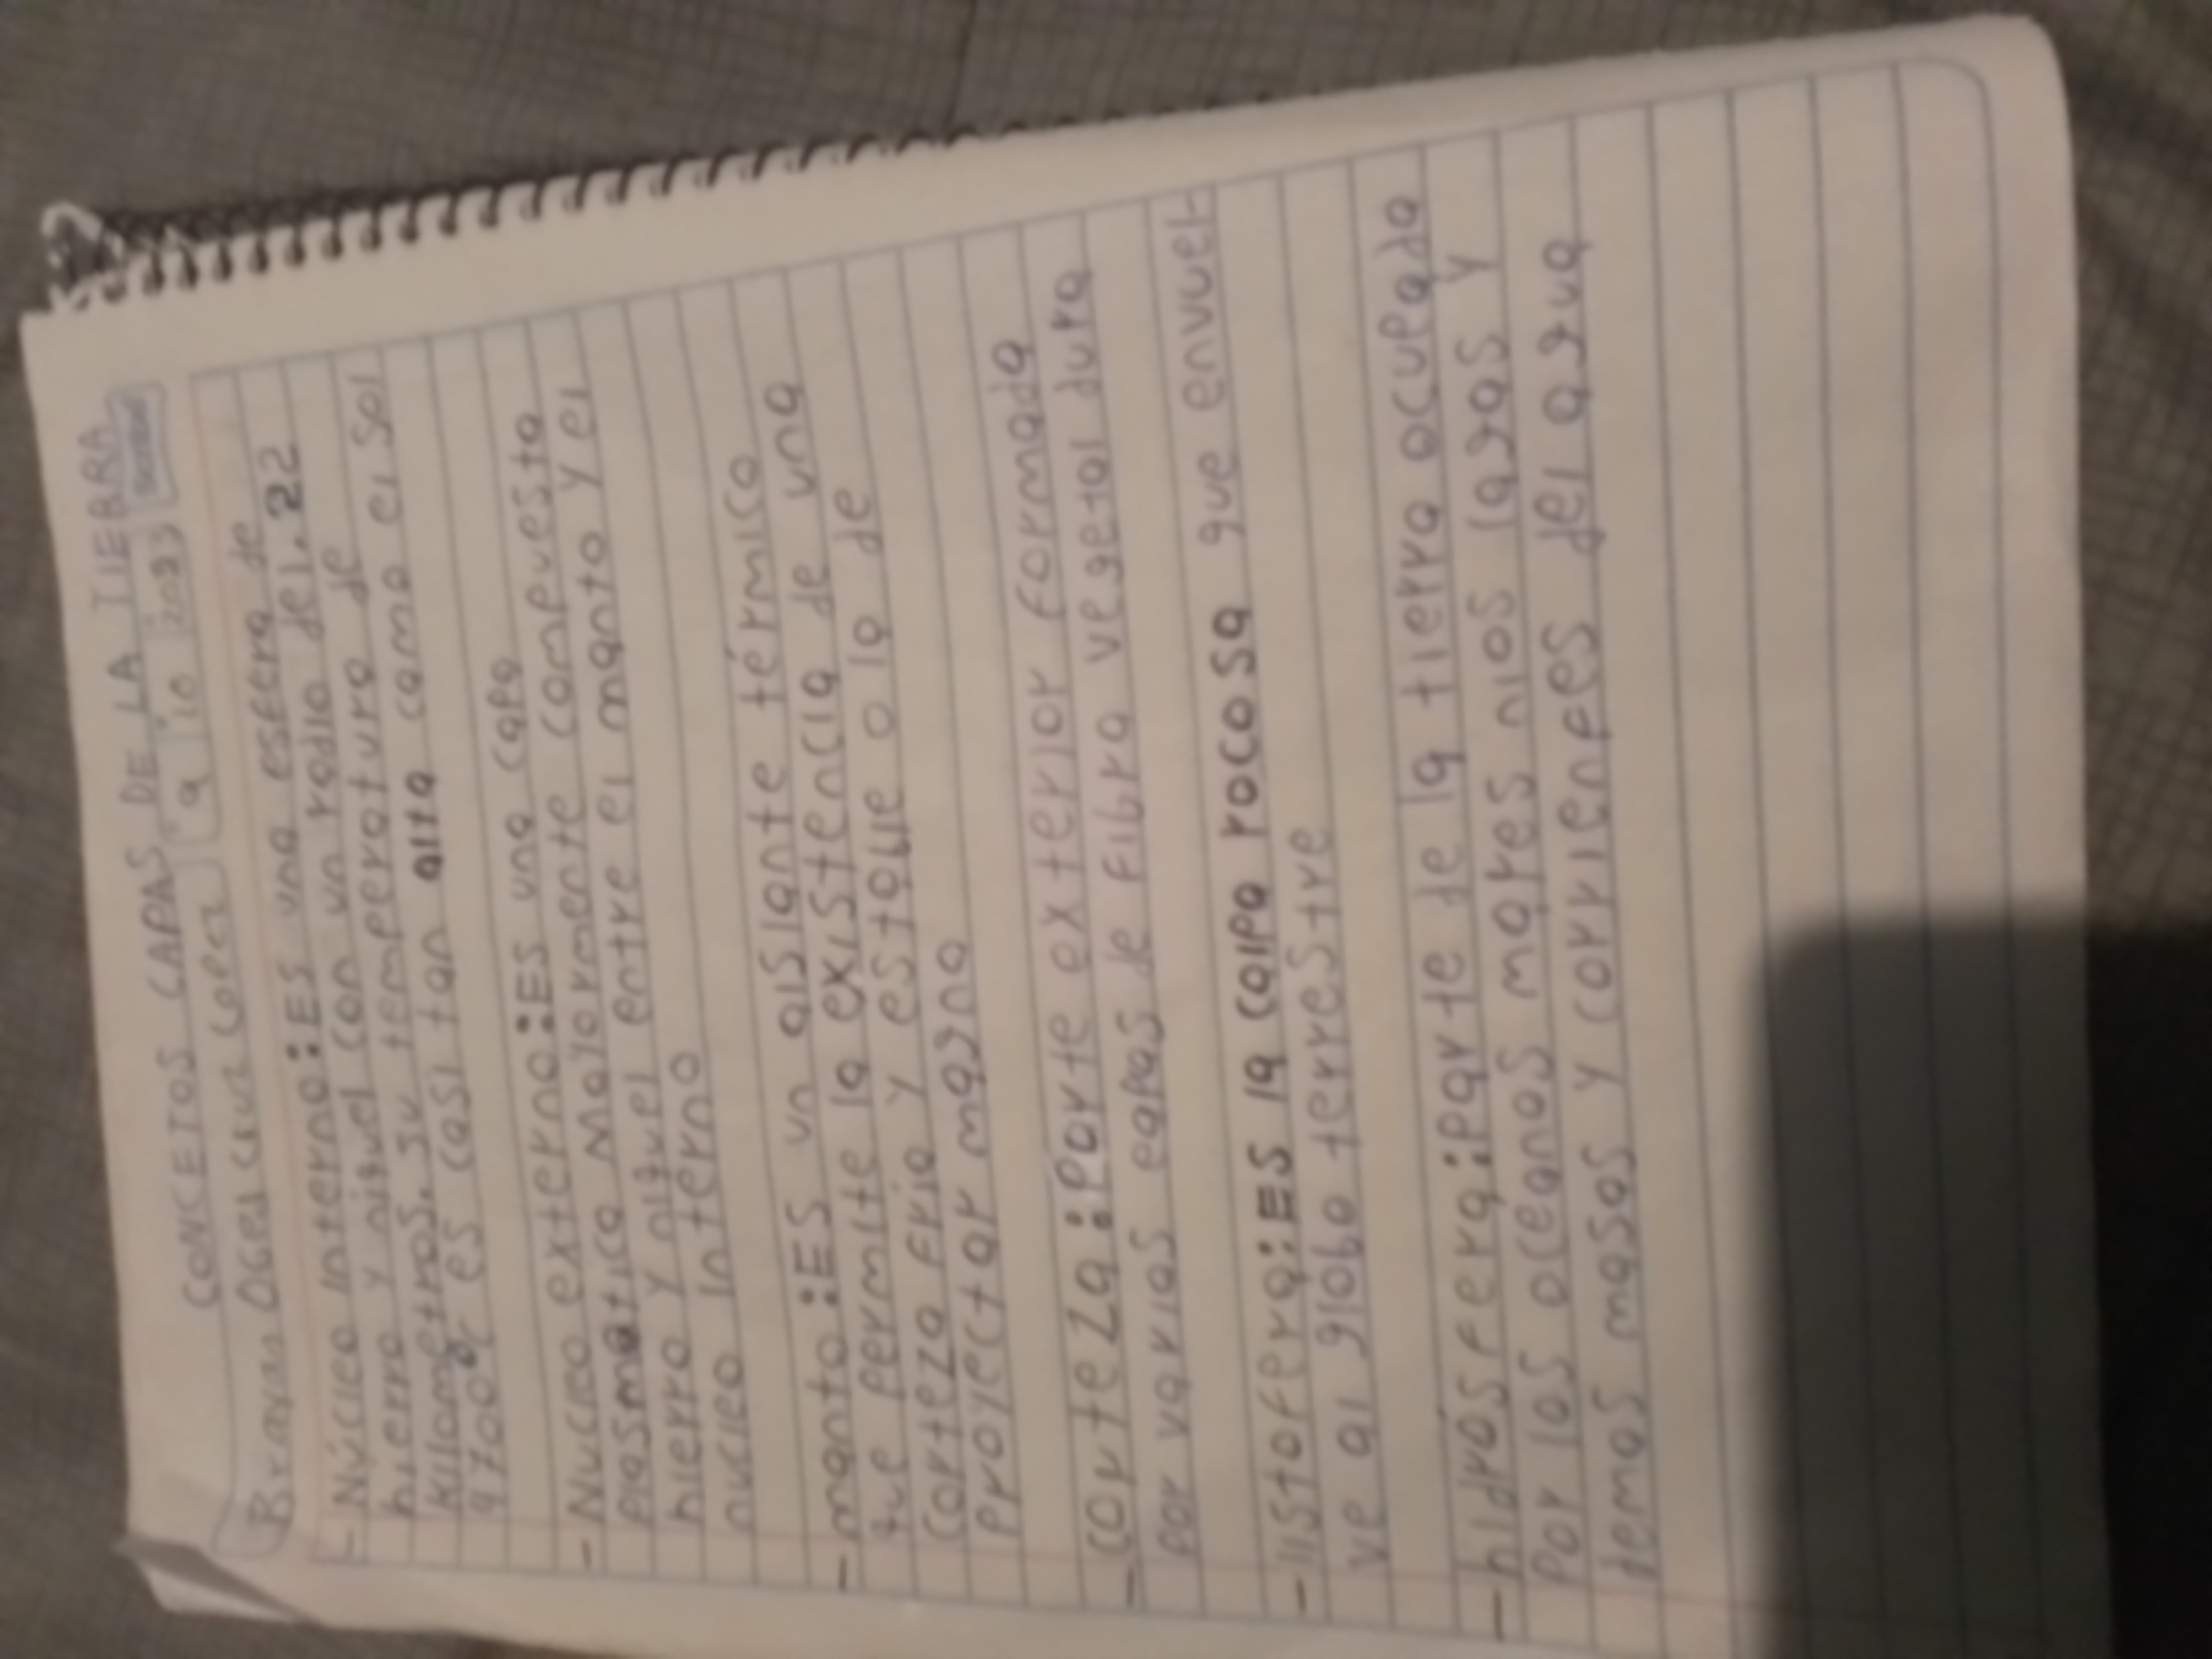 CONCETOS CAPAS DE LA TIEBRA
Brayan Oged Cruz Lopez 9 10 2023
- Núcleo interno: ES una esfera de
hierro y niquel con un radio de 1.22
kilometros. su temperatura de
4700°c es casi tan alta como el sol
- Nucleo externo: ES una capa
plasmatica Mayormente compuesta
hierro y niquel entre el manto y el
nucleo interno
- manto: ES un aislante térmico
que permite la existencia de una
corteza fria y estable o la de
proyectar magna
- corteza: Parte exterior formada
por varias eapas de fibra vegetal dura
- listofera: ES la calpa rocosa que envuel-
ve al globo terrestre
- hidrósfera: parte de la tierra ocupada
por los oceanos mares rios lagas y
demas masas y corrienfes del agua